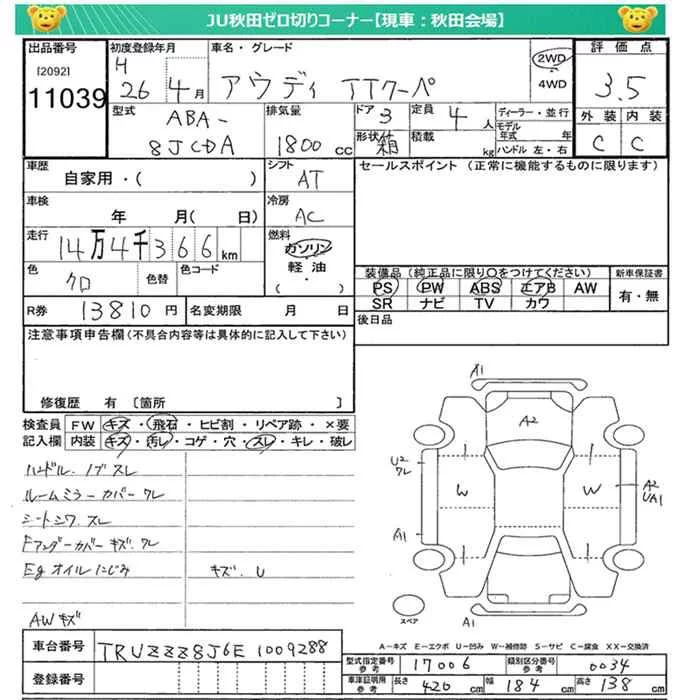 JU秋田ゼロ切りコーナー【現車：秋田会場】
出品番号
[2092]
11039
初度登録年月
H
26 4月
車名・グレード
アウディ TTクーペ
2WD
4WD
評価点
3.5
外装 内装
C C
型式
ABA-
8JCDA
排気量
1800 cc
ドア 3
定員 4 人
形状 箱
積載 kg
ディーラー・並行
モデル年式 年
ハンドル 左・右
車歴
自家用・( )
シフト
AT
セールスポイント (正常に機能するものに限ります)
車検
年 月( 日)
冷房
AC
走行
14万4千366km
燃料
ガソリン
軽油
・
( )
色
クロ
色替
色コード
装備品(純正品に限り○をつけてください)
PS PW ABS エアB AW
SR ナビ TV カワ
新車保証書
有・無
R券
13810円
名変期限 月 日
後日品
注意事項申告欄(不具合内容等は具体的に記入して下さい)
修復歴 有 〔箇所 〕
検査員
記入欄
FW キズ・飛石・ヒビ割・リペア跡・×要
内装 キズ・汚レ・コゲ・穴・スレ・キレ・破レ
ハンドル.ノブ スレ
ルームミラーカバー ワレ
シートシワ.スレ
Fアンダーカバー キズ.ワレ
Egオイルにじみ
キズ.U
AWキズ
A1
A2
U2
ワレ
W
W
A2
UA1
A1
A1
スペア
A－キズ E－エクボ U－凹み W－補修跡 S－サビ C－腐食 XX－交換済
車台番号
TRUZZZ8J6E1009288
登録番号
型式指定番号 参考
17006
類別区分番号 参考
0034
車庫証明用 参考
長さ 420 cm
幅 184 cm
高さ 138 cm